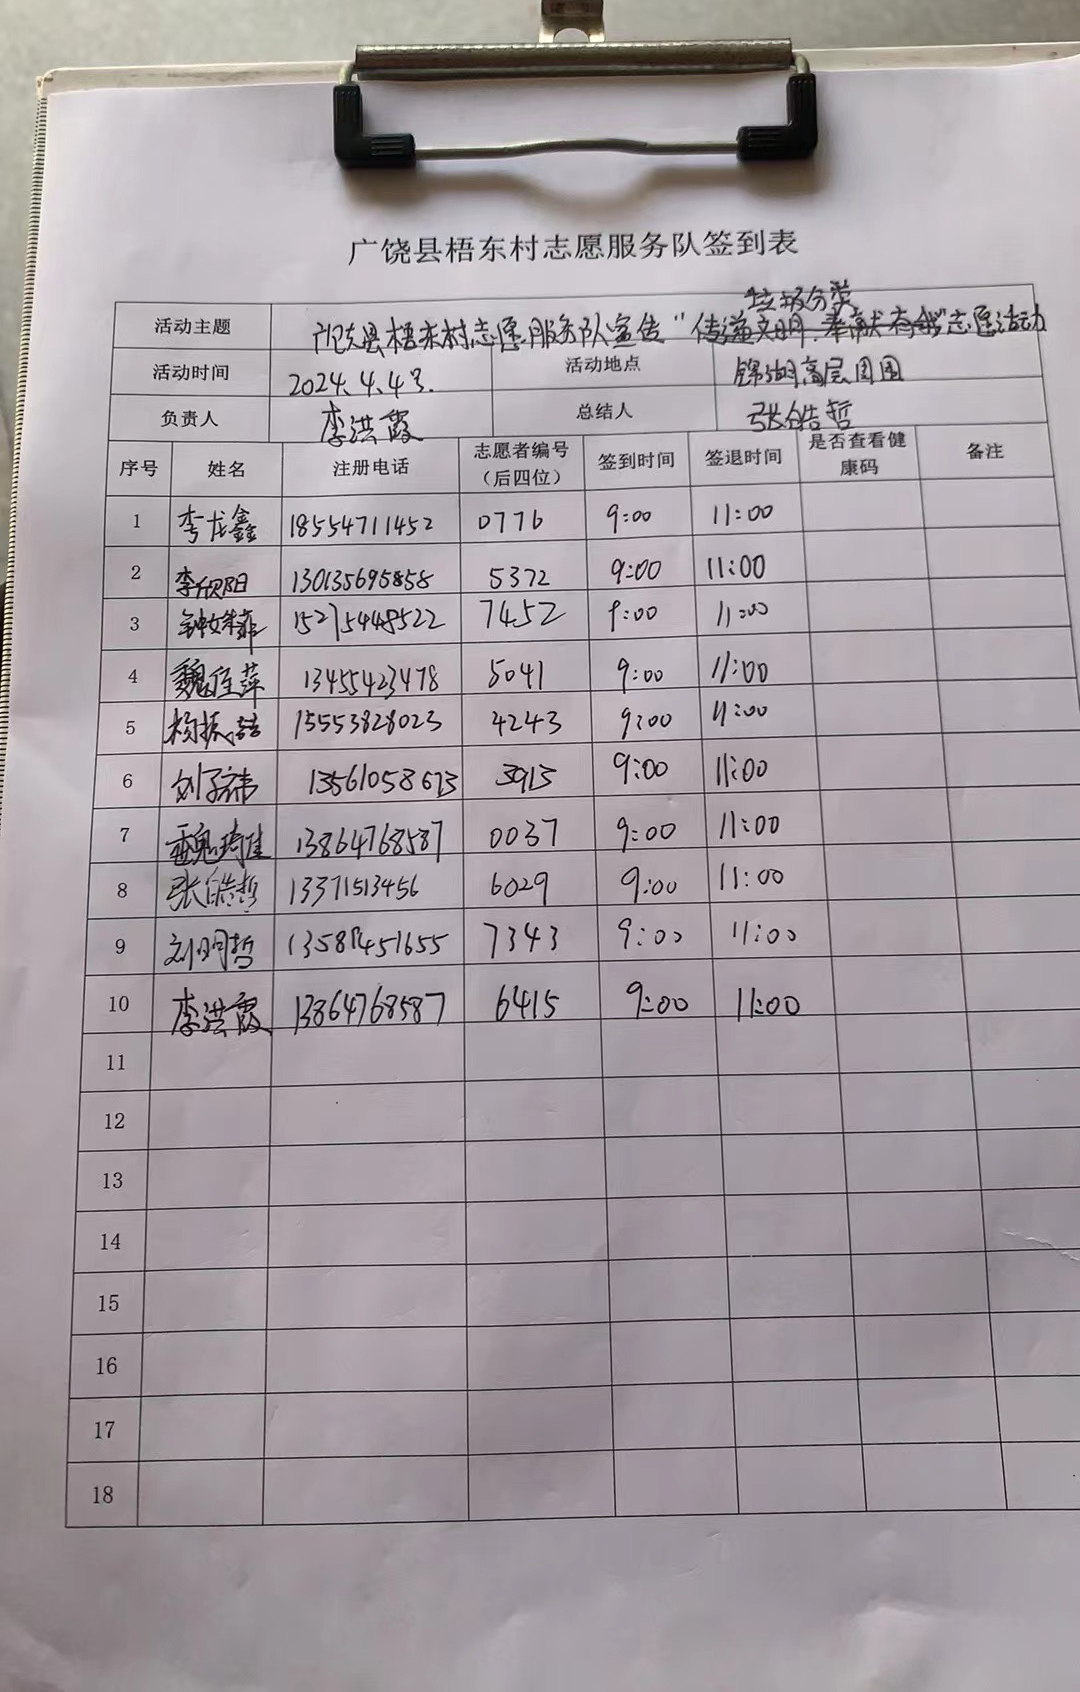 广饶县梧东村志愿服务队签到表
垃圾分类
活动主题 广饶县梧东村志愿服务队宣传“传递文明.奉献有我”志愿活动
活动时间 2024.4.4号. 活动地点 锦湖高层周围
负责人 李洪霞 总结人 张皓哲
序号 姓名 注册电话 志愿者编号（后四位） 签到时间 签退时间 是否查看健康码 备注
1 李龙鑫 18554711452 0776 9:00 11:00
2 李欣阳 130135695858 5372 9:00 11:00
3 15275448522 7452 9:00 11:00
4 魏佳萍 13455423478 5041 9:00 11:00
5 杨振喆 15553828023 4243 9:00 11:00
6 刘子祎 13561058673 3913 9:00 11:00
7 魏琦佳 13864768587 0037 9:00 11:00
8 张皓哲 13371513456 6029 9:00 11:00
9 刘明哲 7343 9:00 11:00
10 李洪霞 13864768587 6415 9:00 11:00
11
12
13
14
15
16
17
18